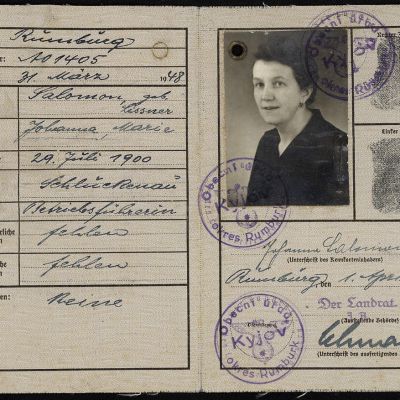 Rumburg
er: A01405
31. März 1948
Salomon, geb.
Lissner
Johanna, Marie
29. Juli 1900
Schluckenau
Betriebsführerin
rliche
fehlen
fehlen
en:
Keine
Obecní úřad
Kyjov
okres Rumburk
Obecní úřad
Kyjov
okres Rumburk
Obecní úřad
Kyjov
okres Rumburk
Linker
Johanna Salomon
(Unterschrift des Kennkarteninhabers)
Rumburg, den 1. Apr
Der Landrat.
(Ausstellende Behörde)
(Unterschrift des ausfertigenden